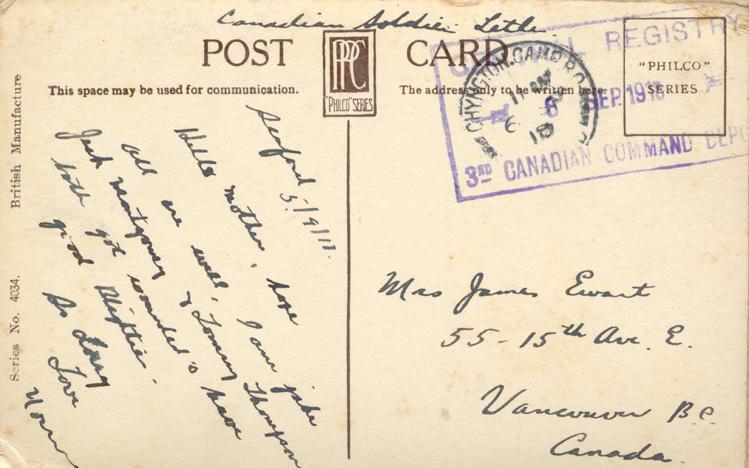 Canadian Soldier Letter
POST CARD.
PPC
"PHILCO" SERIES
This space may be used for communication.
The address only to be written here.
"PHILCO"
SERIES
GENERAL REGISTRY
6 SEP. 1918
3RD CANADIAN COMMAND DEPO
CHYNGTON CAMP
British Manufacture
Series No. 4034.
Seaford
5/9/18.
Hello mother, hope
all are well, I am jake
Jack Montgomery & Tommy Thompson
both got wounded & have
good Blightie.
So Long
Love
Norm
Mrs James Ewart
55-15th Ave. E.
Vancouver B.C.
Canada.